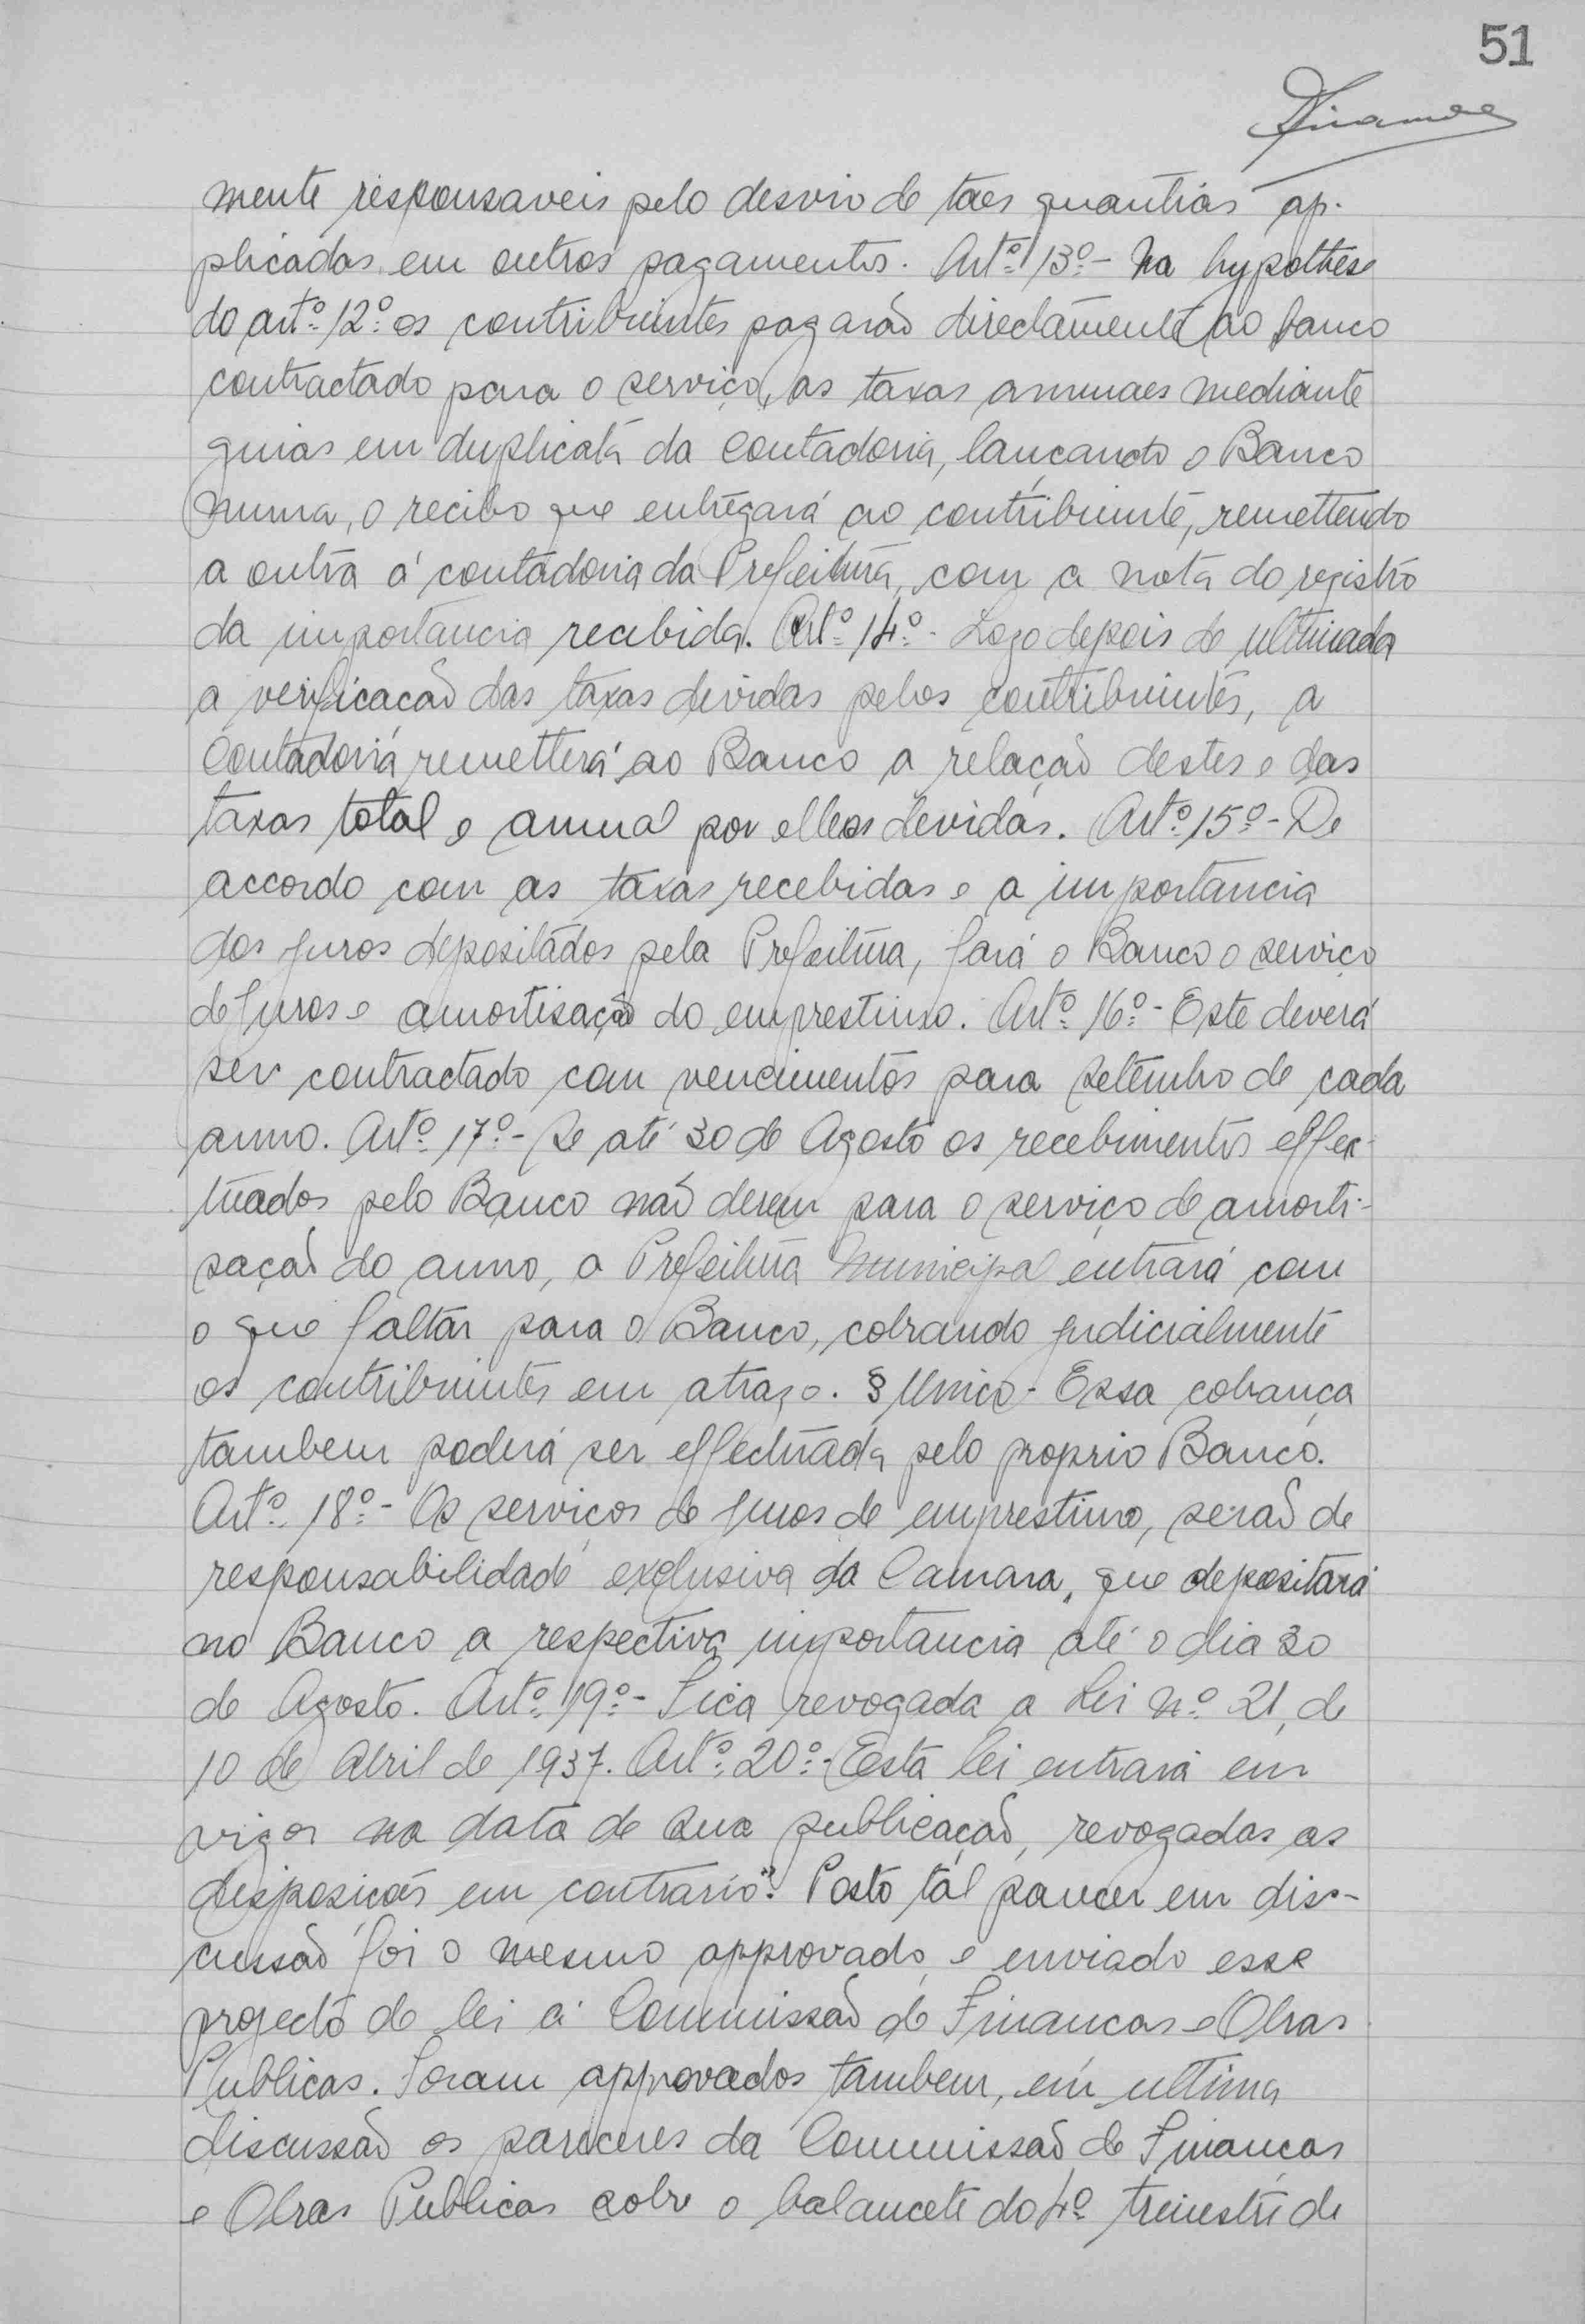 51
mente responsaveis pelo desvio de taes quantias ap-
plicadas em outros pagamentos. Artº 13º- Na hypothese
do artº 12º os contribuintes pagarão directamente ao banco
contractado para o serviço, as taxas annuaes mediante
guias em duplicata da Contadoria, lançando o Banco
numa, o recibo que entregará ao contribuinte, remettendo
a outra á contadoria da Prefeitura, com a nota do registro
da importancia recebida. Artº 14º- Logo depois de ultimada
a verificação das taxas devidas pelos contribuintes, a
Contadoria remetterá ao Banco a relação destes e das
taxas total e annual por elles devidas. Artº 15º- De
accordo com as taxas recebidas e a importancia
dos juros depositados pela Prefeitura, fará o Banco o serviço
de juros e amortisação do emprestimo. Artº 16º- Este deverá
ser contractado com vencimentos para setembro de cada
anno. Artº 17º- Se até 30 de Agosto os recebimentos effec-
tuados pelo Banco não derem para o serviço de amorti-
sação do anno, a Prefeitura Municipal entrará com
o que faltar para o Banco, cobrando judicialmente
os contribuintes em atrazo. § Unico- Essa cobrança
tambem poderá ser effectuada pelo proprio Banco.
Artº 18º- Os serviços de juros de emprestimo, serão de
responsabilidade exclusiva da Camara, que depositará
no Banco a respectiva importancia até o dia 30
de Agosto. Artº 19º- Fica revogada a Lei nº 21, de
10 de Abril de 1937. Artº 20º- Esta lei entrará em
vigor na data de sua publicação, revogadas as
disposições em contrario". Posto tal parecer em dis-
cussão foi o mesmo approvado, e enviado esse
projecto de lei á Commissão de Finanças e Obras
Publicas. Foram approvados tambem, em ultima
discussão os pareceres da Commissão de Finanças
e Obras Publicas sobre o balancete do 4º trimestre de